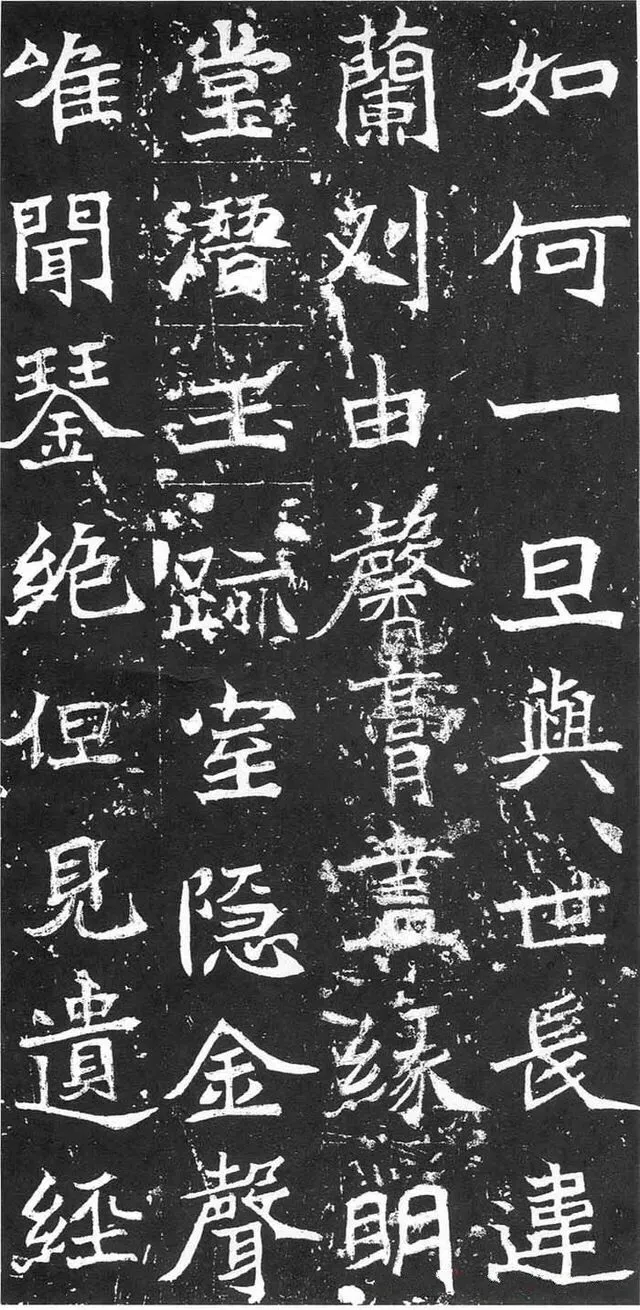 如何一旦與世長違
蘭刈由馨膏盡緣明
堂潛玉跡室隐金聲
唯聞琴絶但見遺經